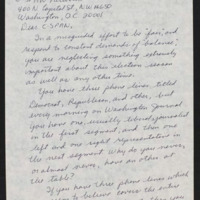 400 N Capitol St., NW #650
Washington, D.C. 20001
Dear C-SPAN,
In a misguided effort to be 'fair' and
respond to constant demands of 'balance',
you are neglecting something extremely
important about this election season
as well as any other time.
You have three phone lines, titled
Democrat, Republican, and other, but
every morning on Washington Journal
you have one, usually liberal, journalist
in the first segment, and then one
left and one right representative in
the next segment. Why do you never,
or almost never, have an other at
the table?
If you have three phone lines which
to believe covers the entire